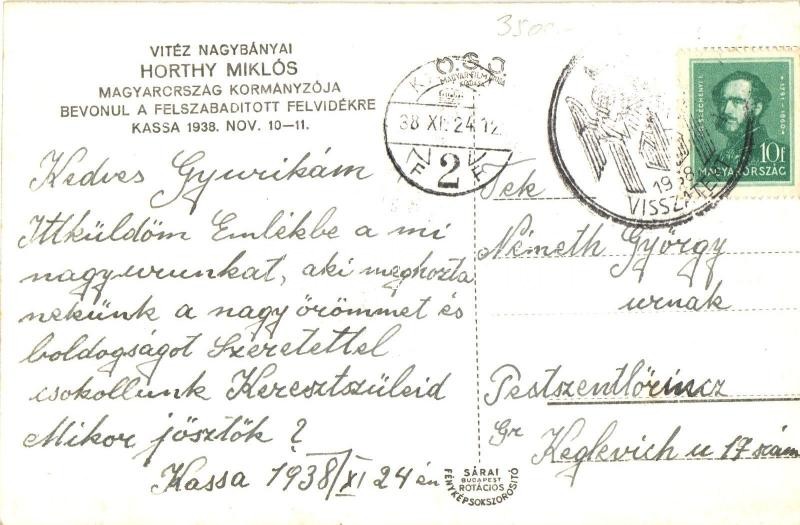 3500
VITÉZ NAGYBÁNYAI
HORTHY MIKLÓS
MAGYARORSZÁG KORMÁNYZÓJA
BEVONUL A FELSZABADITOTT FELVIDÉKRE
KASSA 1938. NOV. 10—11.
Kedves Gyurikám
Ittküldöm Emlékbe a mi
nagyurunkat, aki meghozta
nekünk a nagy örömmet és
boldogságot Szeretettel
csokollunk Keresztszüleid
Mikor jösztök?
Kassa 1938/XI 24 én
38 XI. 24 12
2
1938
VISSZATÉRT
SZÉCHENYI
1791-1860
10f
MAGYARORSZÁG
Tek
Németh György
urnak
Pestszentlőrincz
Gr Keglevich u 17 szám
SÁRAI
BUDAPEST
ROTÁCIÓS
FÉNYKÉPSOKSZOROSITÓ